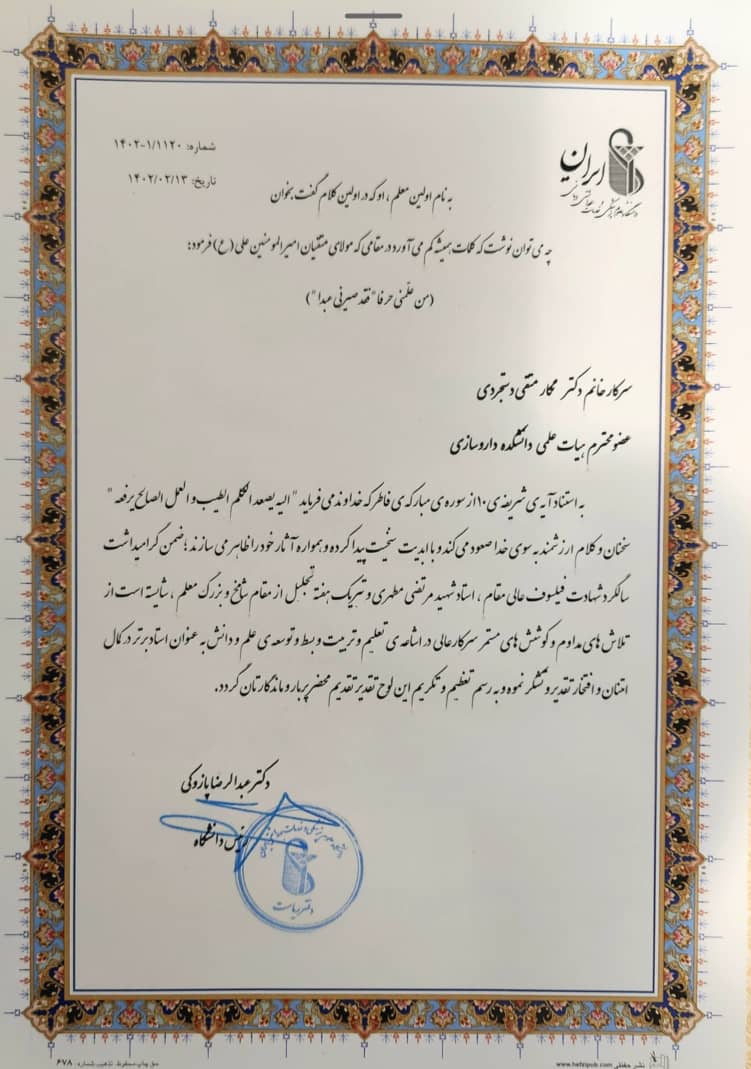 شماره: ۱۴۰۲-۱/۱۱۲۰
تاریخ: ۱۴۰۲/۰۲/۱۳
ایران
دانشگاه علوم پزشکی و خدمات بهداشتی درمانی
به نام اولین معلم ، او که در اولین کلام گفت بخوان
چه می توان نوشت که کلمات همیشه کم می آورد در مقامی که مولای متقیان امیرالمومنین علی (ع) فرمود:
(من علّمنی حرفا" فقد صیرنی عبدا")
سرکار خانم دکتر متقی دستجردی
عضو محترم هیات علمی دانشکده داروسازی
به استناد آیه ی شریفه ی ۱۰ از سوره ی مبارکه ی فاطر که خداوند می فرماید " الیه یصعد الکلم الطیب و العمل الصالح یرفعه "
سخنان و کلام ارزشمند به سوی خدا صعود می کند و با ابدیت سنخیت پیدا کرده و همواره آثار خود را ظاهر می سازند ؛ ضمن گرامیداشت
سالگرد شهادت فیلسوف عالی مقام ، استاد شهید مرتضی مطهری و تبریک هفته تجلیل از مقام شامخ و بزرگ معلم ، شایسته است از
تلاش های مداوم و کوشش های مستمر سرکارعالی در اشاعه ی تعلیم و تربیت و بسط و توسعه ی علم و دانش به عنوان استاد برتر در کمال
امتنان و افتخار تقدیر و تشکر نموده و به رسم تعظیم و تکریم این لوح تقدیر تقدیم محضر پربار و ماندگارتان گردد.
دکتر عبدالرضا پازوکی
رئیس دانشگاه
دفتر ریاست
حق چاپ محفوظ، تذهیب شماره: ۶۷۸
نشر حفظی www.hefzipub.com